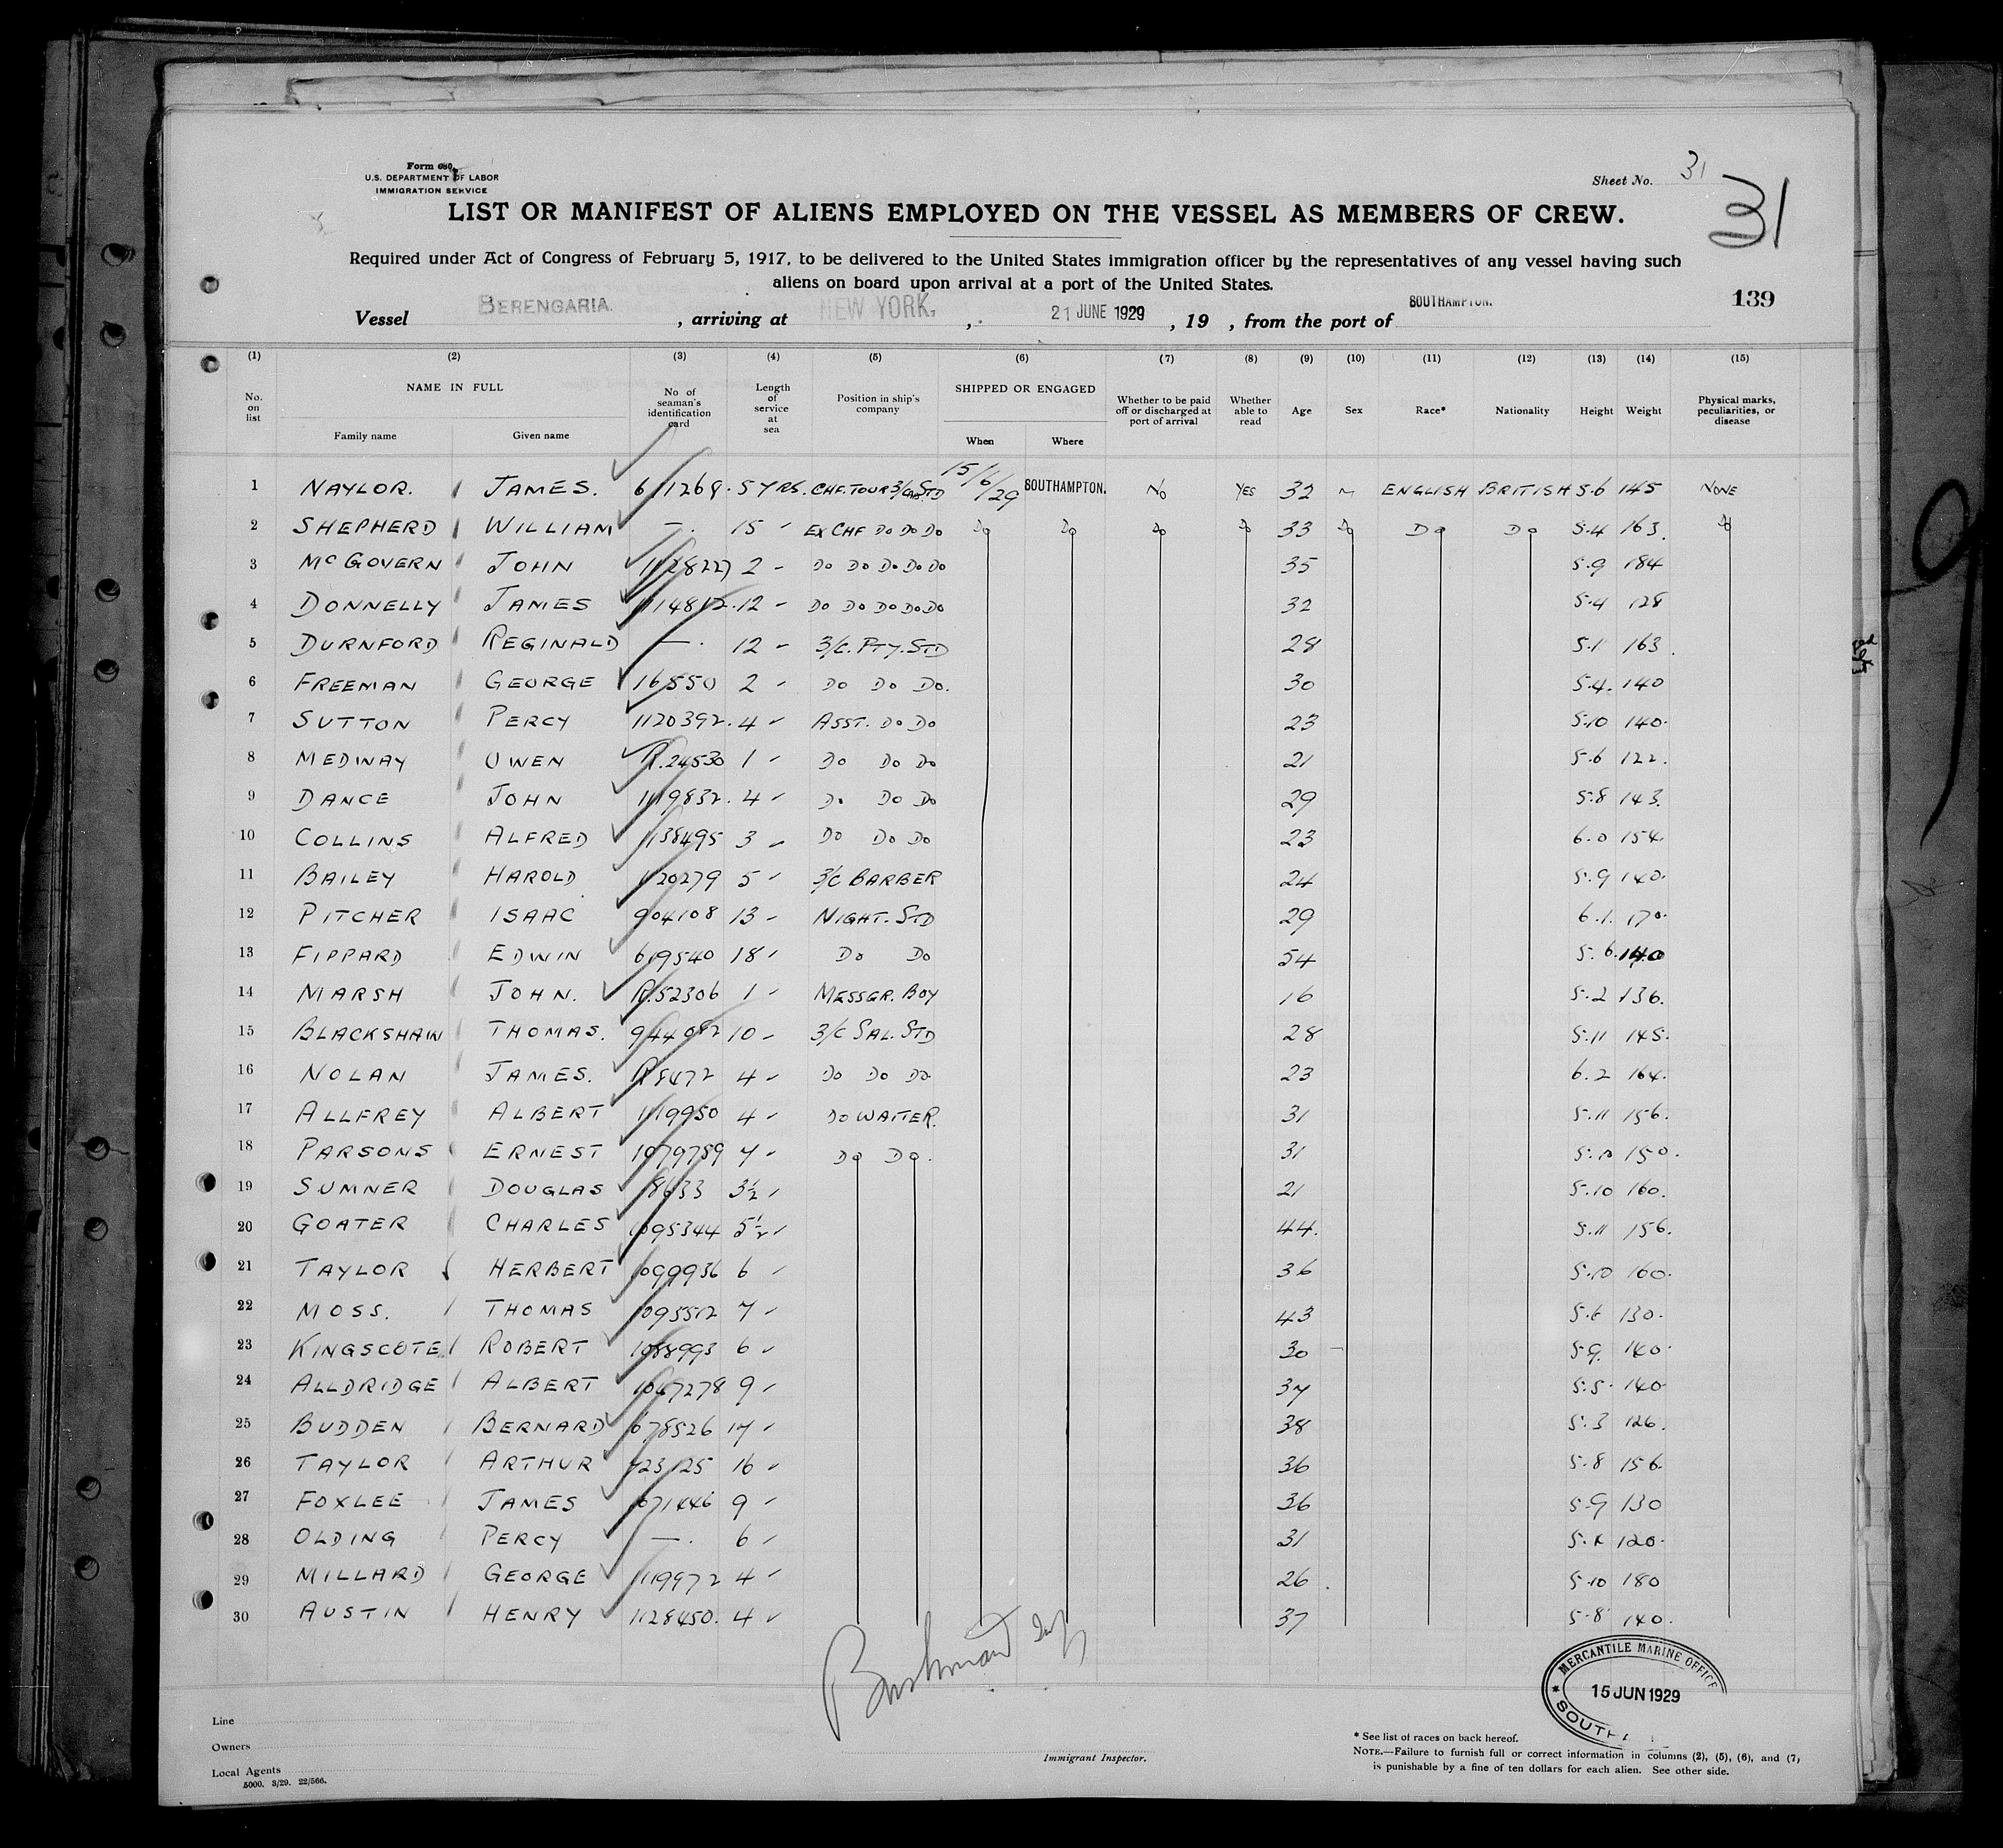 Form 680
U.S. DEPARTMENT OF LABOR
IMMIGRATION SERVICE
Sheet No. 31
31
LIST OR MANIFEST OF ALIENS EMPLOYED ON THE VESSEL AS MEMBERS OF CREW.
Required under Act of Congress of February 5, 1917, to be delivered to the United States immigration officer by the representatives of any vessel having such
aliens on board upon arrival at a port of the United States.
139
Vessel BERENGARIA. , arriving at NEW YORK. , 21 JUNE 1929 , 19 , from the port of SOUTHAMPTON.
(1) (2) (3) (4) (5) (6) (7) (8) (9) (10) (11) (12) (13) (14) (15)
No. on list NAME IN FULL Family name Given name No of seaman's identification card Length of service at sea Position in ship's company SHIPPED OR ENGAGED When Where Whether to be paid off or discharged at port of arrival Whether able to read Age Sex Race* Nationality Height Weight Physical marks, peculiarities, or disease
1 NAYLOR. JAMES. 5 YRS. CHF. TOUR 3/C STD 15/6/29 SOUTHAMPTON. No YES 32 M ENGLISH BRITISH 5.6 145 NONE
2 SHEPHERD WILLIAM —. 15 Ex CHF Do Do Do Do Do Do Do 33 Do Do Do 5.4 163. Do
3 McGOVERN JOHN 2 Do Do Do Do Do 35 5.9 184
4 DONNELLY JAMES 12 Do Do Do Do Do 32 5.4 128
5 DURNFORD REGINALD —. 12 3/C. PTY. STD 28 5.1 163.
6 FREEMAN GEORGE 16550 2 Do Do Do. 30 5.4. 140
7 SUTTON PERCY 1120392. 4 ASST. Do Do 23 5.10 140.
8 MEDWAY OWEN R.24530 1 Do Do Do 21 5.6 122.
9 DANCE JOHN 1119832. 4 Do Do Do 29 5.8 143.
10 COLLINS ALFRED 1138495 3 Do Do Do 23 6.0 154.
11 BAILEY HAROLD 1120279 5 3/C BARBER 24 5.9 140.
12 PITCHER ISAAC 904108 13 NIGHT. STD 29 6.1. 170.
13 FIPPARD EDWIN 619540 18 Do Do 54 5.6. 140
14 MARSH JOHN. R.52306 1 MESSGR. BOY 16 5.2 136.
15 BLACKSHAW THOMAS. 10 3/C SAL. STD 28 5.11 145.
16 NOLAN JAMES. R8472 4 Do Do Do 23 6.2 164.
17 ALLFREY ALBERT 1119950 4 Do WAITER. 31 5.11 156.
18 PARSONS ERNEST 1079789 7 Do Do. 31 5.10 150.
19 SUMNER DOUGLAS 18633 3½ 21 5.10 160.
20 GOATER CHARLES 1095344 5½ 44. 5.11 156.
21 TAYLOR HERBERT 1099936 6 36 5.10 160.
22 MOSS. THOMAS 1095512 7 43 5.6 130.
23 KINGSCOTE ROBERT 1088993 6 30 5.9. 140.
24 ALLDRIDGE ALBERT 1047278 9 37 5.5. 140
25 BUDDEN BERNARD 678526 17 38 5.3 126.
26 TAYLOR ARTHUR 723125 16 36 5.8 156.
27 FOXLEE JAMES 1071446 9 36 5.9 130
28 OLDING PERCY —. 6 31 120.
29 MILLARD GEORGE 1119972 4 26. 5.10 180
30 AUSTIN HENRY 1128450. 4 37 5.8 140.
MERCANTILE MARINE OFFICE
15 JUN 1929
Line
Owners
Local Agents
5000. 3/29. 22/566.
Immigrant Inspector.
* See list of races on back hereof.
NOTE.—Failure to furnish full or correct information in columns (2), (5), (6), and (7),
is punishable by a fine of ten dollars for each alien. See other side.